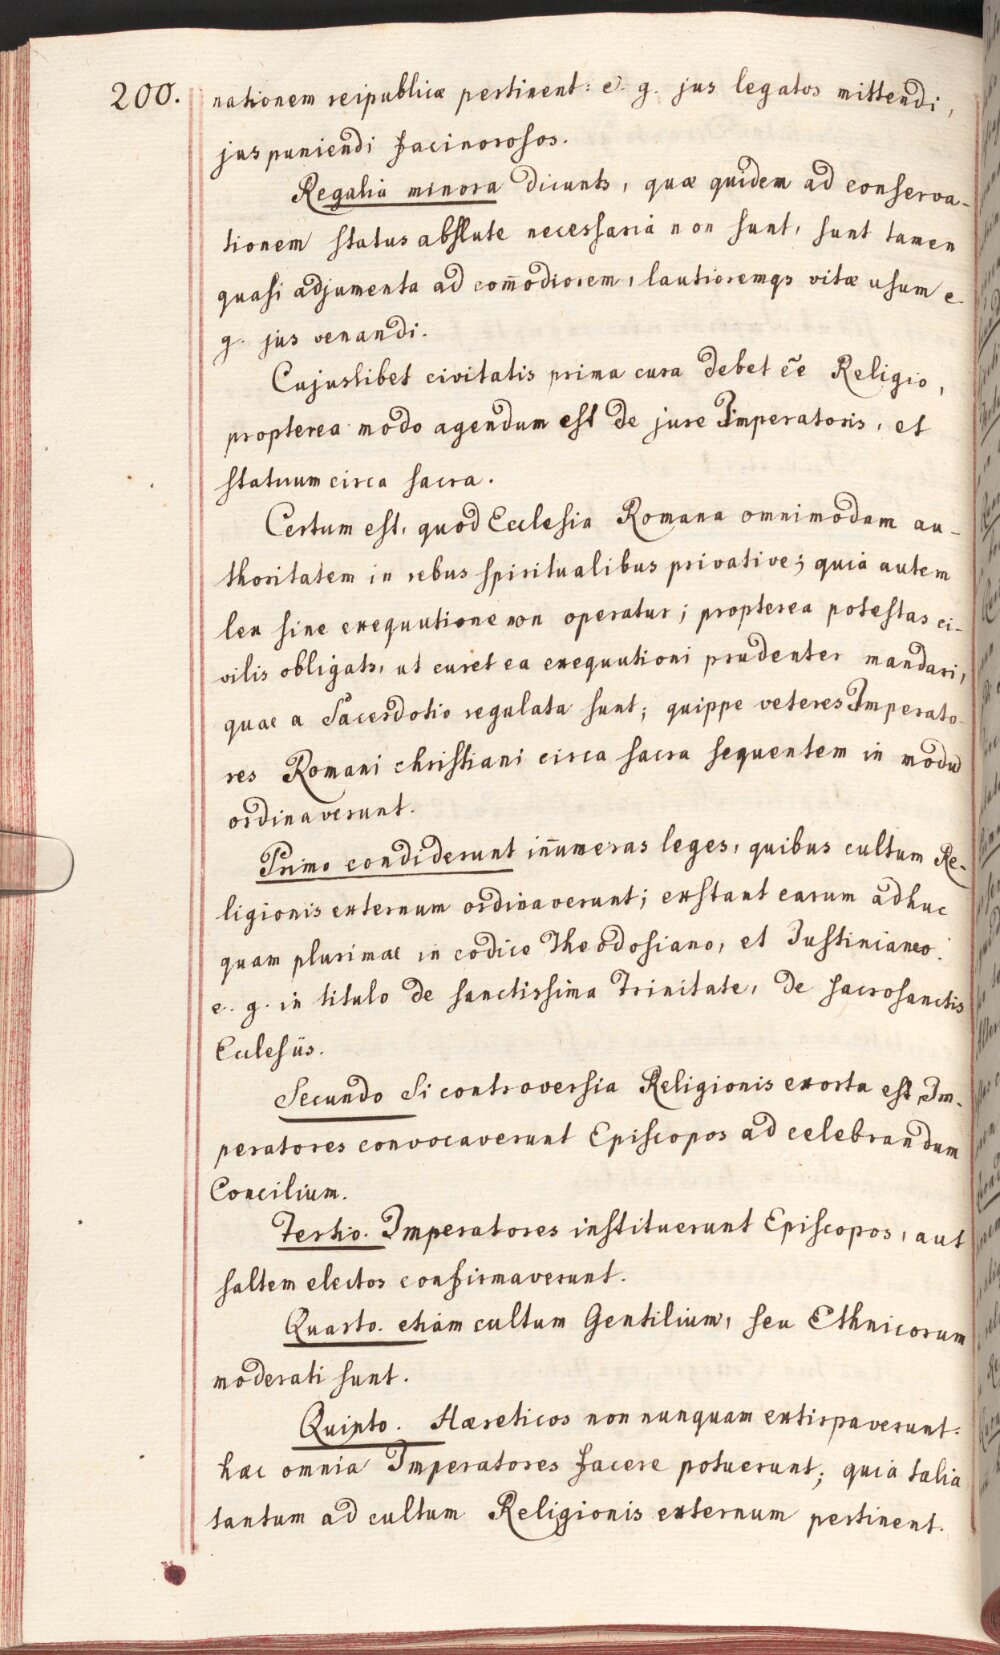 200. nationem reipublicæ pertinent: e. g. jus legatos mittendi,
jus puniendi facinorosos.
Regalia minora dicunts, quæ quidem ad conserva-
tionem status absolute necessaria non sunt, sunt tamen
quasi adjumenta ad com̄odiorem, lautioremqs vitæ usum e.
g. jus venandi.
Cujuslibet civitatis prima cura debet ēe Religio,
propterea modo agendum est de jure Imperatoris, et
statuum circa sacra.
Certum est, quod Ecclesia Romana omnimodam au-
thoritatem in rebus spiritualibus privative; quia autem
lex sine exequutione non operatur; propterea potestas ci-
vilis obligats, ut curet ea exequutioni prudenter mandari,
quae a Sacerdotio regulata sunt; quippe veteres Imperato-
res Romani christiani circa sacra sequentem in modū
ordinaverunt.
Primo condiderunt iñumeras leges, quibus cultum Re-
ligionis externum ordinaverunt; exstant earum adhuc
quam plurimae in codice Theodosiano, et Justinianeo.
e. g. in titulo de sanctissima Trinitate, de sacrosanctis
Ecclesiis.
Secundo Si controversia Religionis exorta est, Im-
peratores convocaverunt Episcopos ad celebrandum
Concilium.
Tertio. Imperatores instituerunt Episcopos, aut
saltem electos confirmaverunt.
Quarto. etiam cultum Gentilium, seu Ethnicorum
moderati sunt.
Quinto. Hæreticos non nunquam extirpaverunt:
hæc omnia Imperatores facere potuerunt; quia talia
tantum ad cultum Religionis externum pertinent.